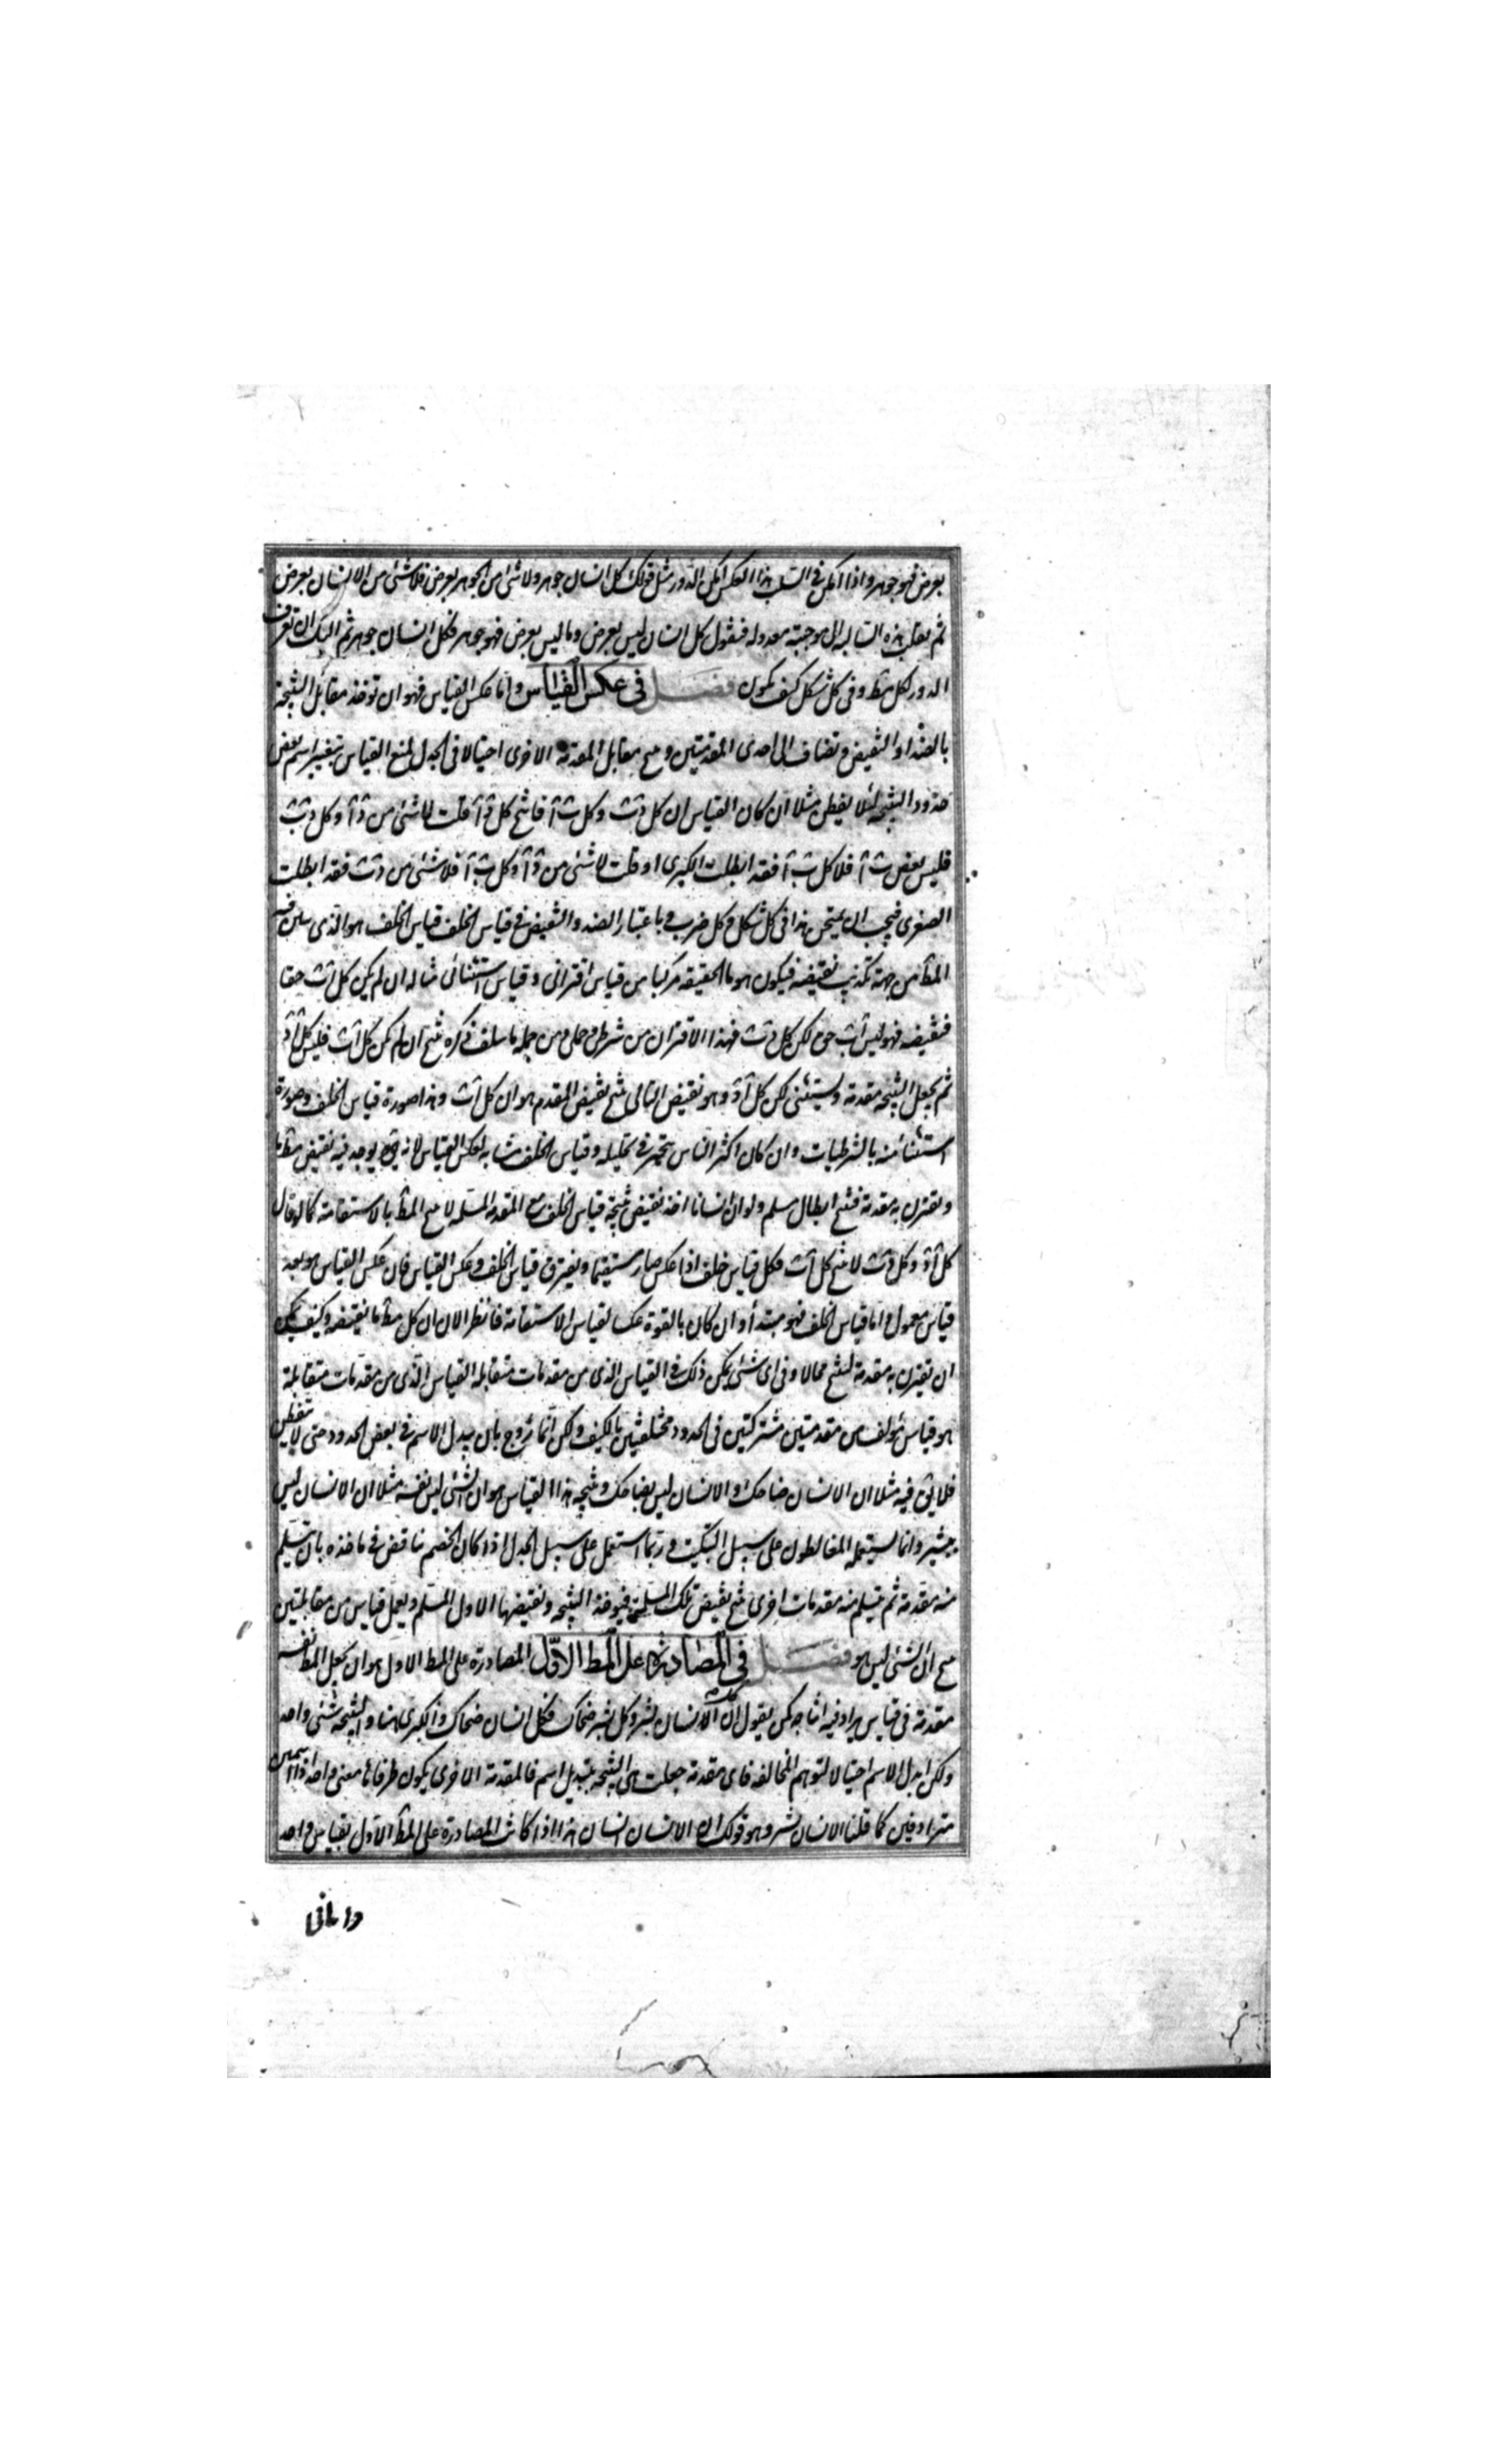 بعرض فهو جوهر واذا امكن فى السلب هذا العكس امكن الدور مثل قولك كل انسان جوهر ولا شئ من الجوهر بعرض فلا شئ من الانسان بعرض
ثم تقلب هذه السالبة الى موجبة معدولة فنقول كل انسان ليس بعرض وما ليس بعرض فهو جوهر فكل انسان جوهر ثم اليك ان تعرف
الدور لكل مط وفى كل شكل كيف يكون فصل فى عكس القياس واما عكس القياس فهو ان توخذ مقابل النتيجة
بالضد او النقيض وتضاف الى احدى المقدمتين وينتج مقابل المقدمة الاخرى احتيالا فى الجدل لمنع القياس بتغيير اسم بعض
حدود النتيجة لئلا يفطن مثلا ان كان القياس ان كل دَ بَ وكل بَ آ فانتج كل دَ آ قلت لا شئ من دَ آ وكل دَ بَ
فليس بعض بَ آ فلا كل بَ آ فقد ابطلت الكبرى او قلت لا شئ من دَ آ وكل بَ آ فلا شئ من دَ بَ فقد ابطلت
الصغرى فيجب ان يمتحن هذا فى كل شكل وكل ضرب وباعتبار الضد والنقيض فى قياس الخلف قياس الخلف هو الذى يبين فيه
المط من جهة تكذيب نقيضه فيكون هو بالحقيقة مركبا من قياس اقترانى وقياس استثنائى مثاله ان لم يكن كل آ بَ حقا
فنقيضه فهو ليس آ بَ حق لكن كل دَ بَ فهذا الاقتران من شرطى وحملى ومن جملة ما سلف ذكره ينتج ان لم يكن كل آ بَ فليس كل آ دَ
ثم يجعل النتيجة مقدمة ويستثنى لكن كل آ دَ وهو نقيض التالى ينتج نقيض المقدم هو ان كل آ بَ وهذا صورة قياس الخلف وصورة
استثنائه بالشرطيات وان كان اكثر الناس يتحير فى تحليله وقياس الخلف مشابه لعكس القياس لانه يوجد فيه نقيض مط ما
ويقترن به مقدمة فينتج ابطال مسلم ولو ان انسانا اخذ نقيض نتيجة قياس الخلف مع المقدمة المسلمة لانتج المط بالاستقامة كما لو قال
كل آ دَ وكل دَ بَ لانتج كل آ بَ فكل قياس خلف اذا عكس صار مستقيما ويفترق قياس الخلف وعكس القياس فان عكس القياس هو بعد
قياس معمول واما قياس الخلف فهو مبتدأ وان كان بالقوة عكسا لقياس الاستقامة فانظر الان ان كل مط ما نقيضه وكيف يمكن
ان تقترن به مقدمة لينتج محالا وفى اى شئ يمكن ذلك فى القياس الذى من مقدمات متقابلة القياس الذى من مقدمات متقابلة
هو قياس مؤلف من مقدمتين مشتركتين فى الحدود مختلفتين بالكيف ولكن انما تروج بان يبدل الاسم فى بعض الحدود حتى لا يتفطن
فلا يق فيه مثلا ان الانسان ضاحك والانسان ليس بضاحك ونتيجة هذا القياس هو ان الشئ ليس نفسه مثلا ان الانسان ليس
ببشر وانما يستعمله المغالطون على سبيل التبكيت وربما استعمل على سبيل الجدل اذا كان الخصم تناقض فى ماخذه بان يتسلم
منه مقدمة ثم يتسلم منه مقدمات اخرى ينتج نقيض تلك المسلمة فيوخذ النتيجة ونقيضها الاول المسلم ويعمل قياس من مقابلتين
ينتج ان الشئ ليس هو فصل فى المصادرة على المط الاول المصادرة على المط الاول هو ان يجعل المط نفسه
مقدمة فى قياس يراد فيه انتاجه كمن يقول ان كل انسان بشر وكل بشر ضحاك فكل انسان ضحاك والكبرى هنا والنتيجة شئ واحد
ولكن ابدل الاسم احتيالا لتوهم المخالفة فاى مقدمة جعلت هى النتيجة بتبديل اسم فالمقدمة الاخرى يكون طرفاها معنى واحد اذا اسمين
مترادفين كما قلنا الانسان بشر وهو قولك ان الانسان انسان هذا اذا كانت المصادرة على المط الاول بقياس واحد